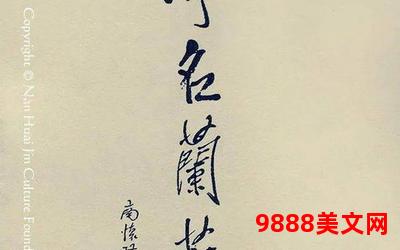 Copyright © Nan Huai Jin Culture Foun
名蘭
南懷
9888美文网